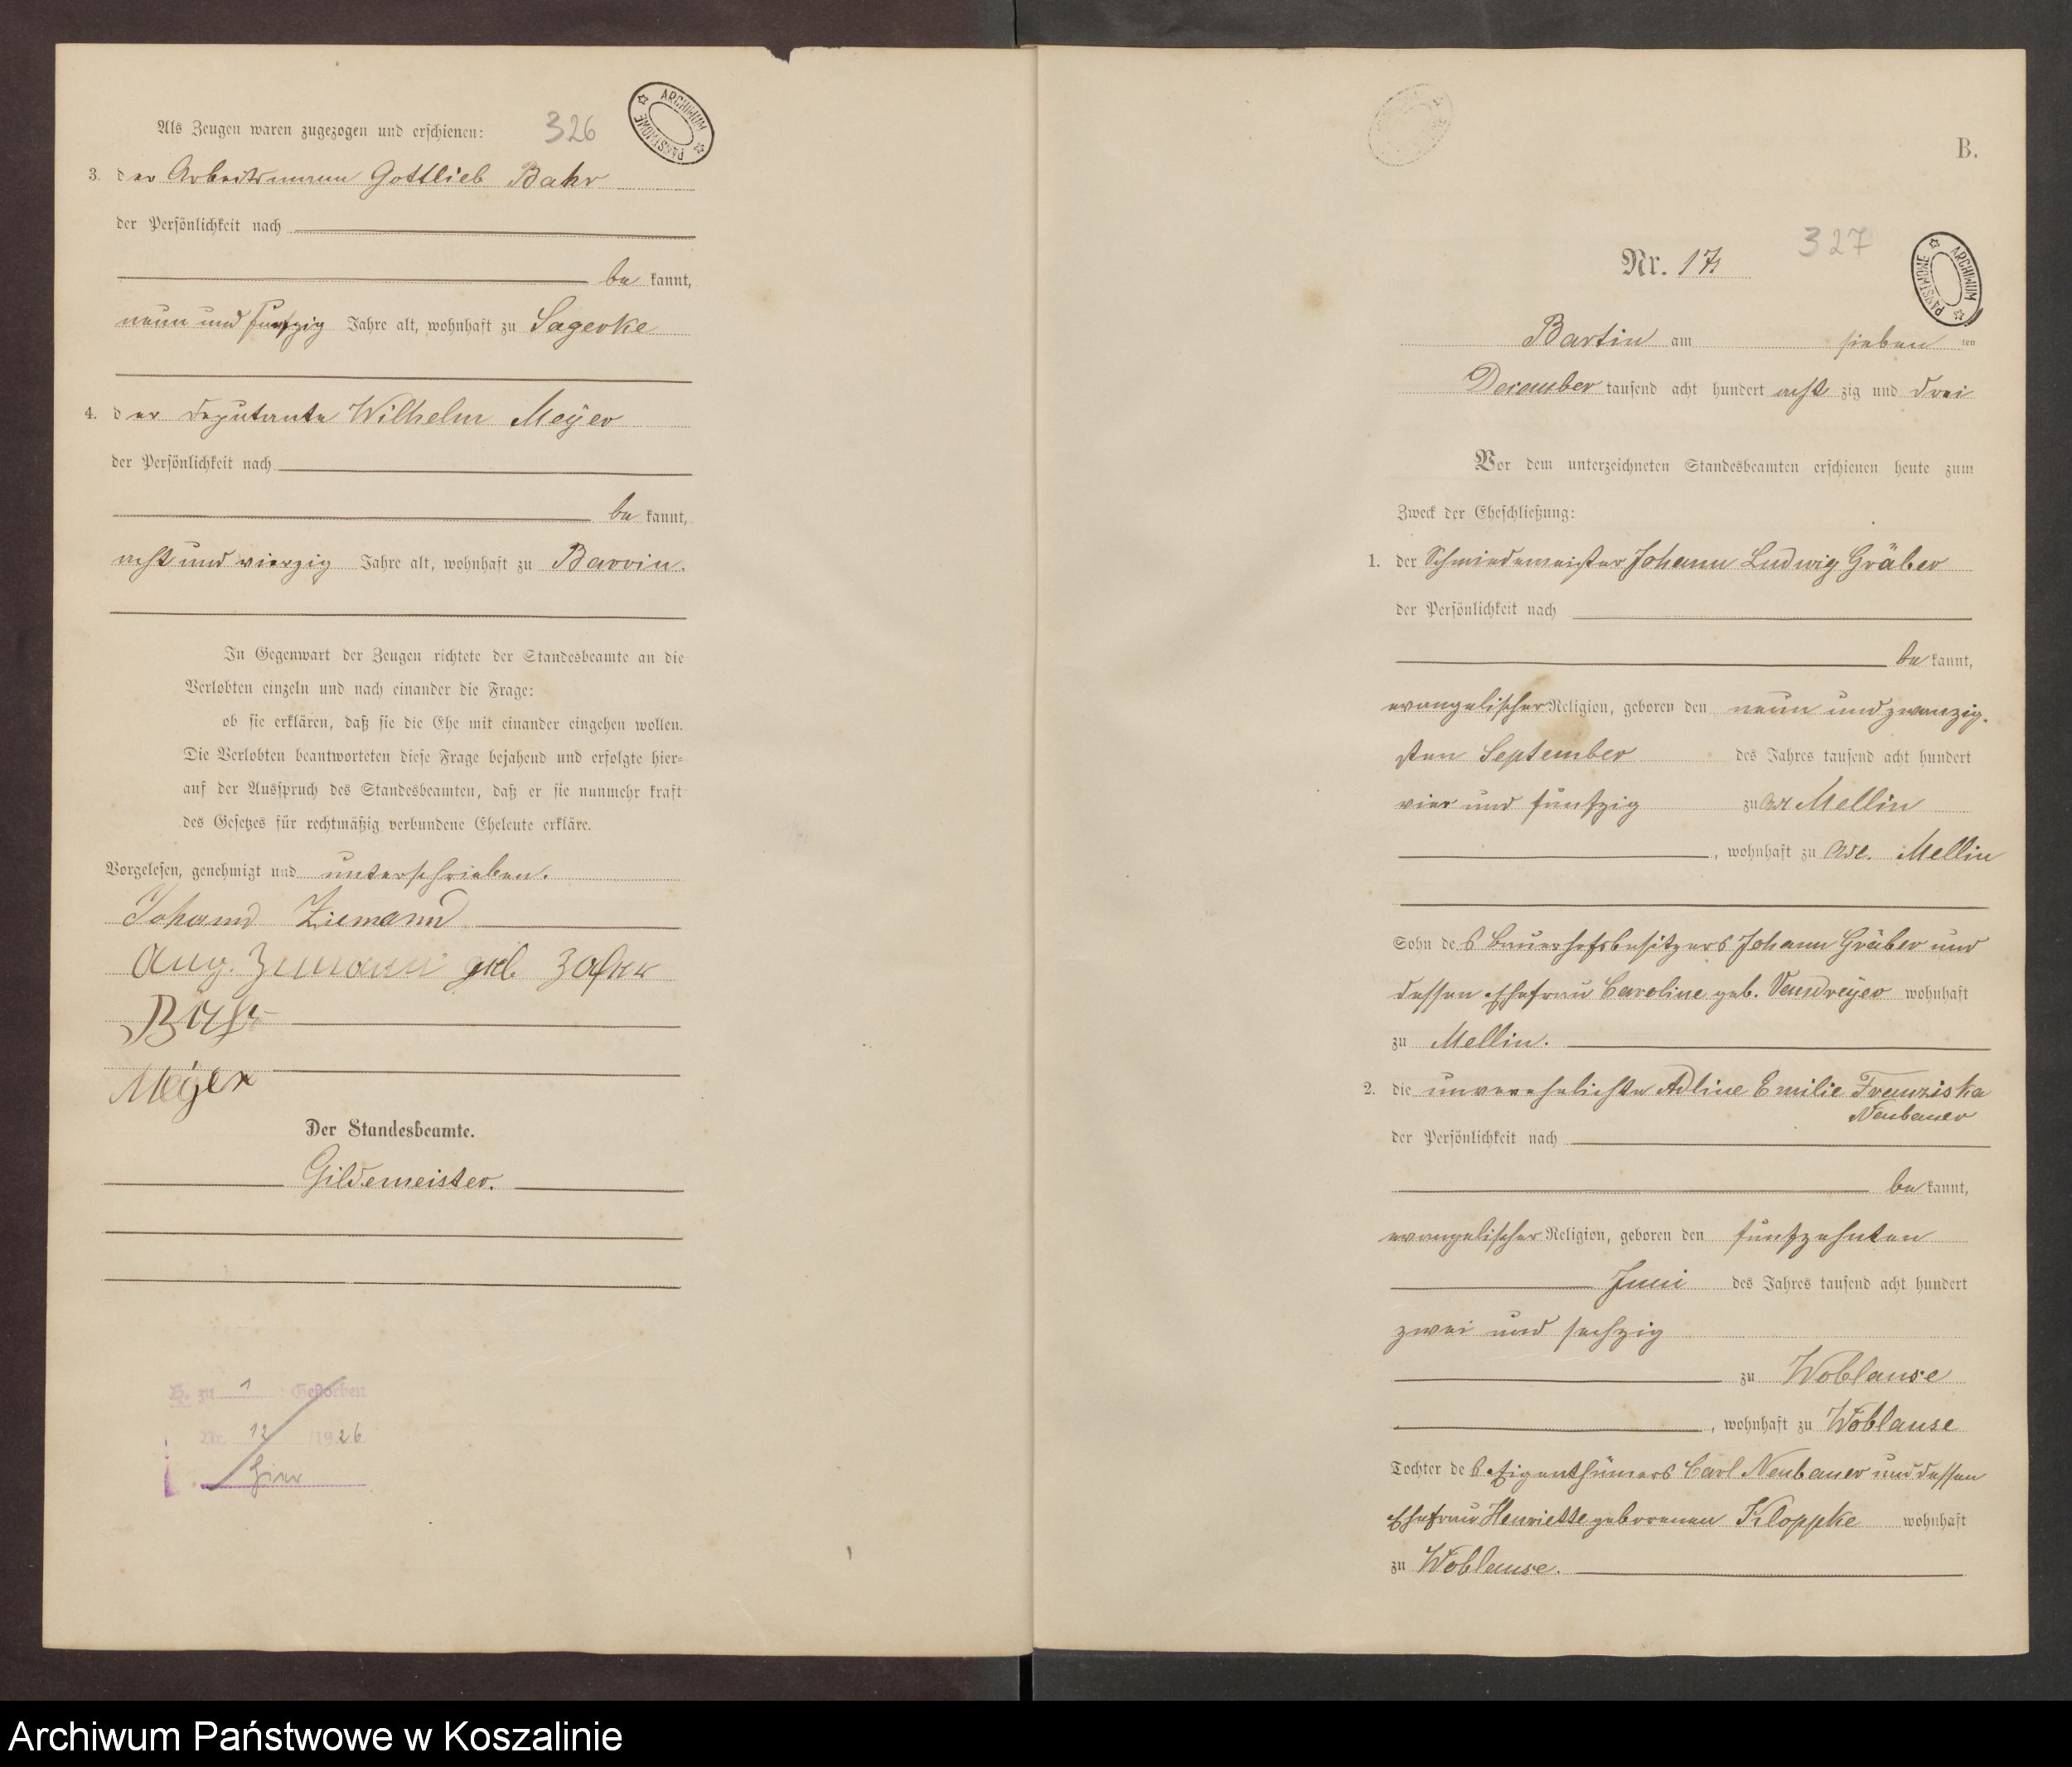 Als Zeugen waren zugezogen und erschienen:
326
ARCHIWUM PAŃSTWOWE
3. der Arbeitsmann Gottlieb Bahr
der Persönlichkeit nach
be kannt,
neun und fünfzig Jahre alt, wohnhaft zu Sagerke
4. der Deputante Wilhelm Meyer
der Persönlichkeit nach
be kannt,
acht und vierzig Jahre alt, wohnhaft zu Barvin.
In Gegenwart der Zeugen richtete der Standesbeamte an die
Verlobten einzeln und nach einander die Frage:
ob sie erklären, daß sie die Ehe mit einander eingehen wollen.
Die Verlobten beantworteten diese Frage bejahend und erfolgte hier=
auf der Ausspruch des Standesbeamten, daß er sie nunmehr kraft
des Gesetzes für rechtmäßig verbundene Eheleute erkläre.
Vorgelesen, genehmigt und unterschrieben.
Johann Ziemann
Aug. Ziemann geb.
Meyer
Der Standesbeamte.
Gildemeister.
H. zu 1 : Gestorben
Nr. 12 /1926
hier
B.
327
Nr. 17
ARCHIWUM PAŃSTWOWE
Bartin am sieben ten
December tausend acht hundert acht zig und drei
Vor dem unterzeichneten Standesbeamten erschienen heute zum
Zweck der Eheschließung:
1. der Schmiedemeister Johann Ludwig Gräber
der Persönlichkeit nach
be kannt,
evangelischer Religion, geboren den neun und zwanzig-
sten September des Jahres tausend acht hundert
vier und fünfzig zu Mellin
, wohnhaft zu Mellin
Sohn des Bauerhofsbesitzers Johann Gräber und
dessen Ehefrau Caroline geb. Vandreyer wohnhaft
zu Mellin.
2. die unverehelichte Adline Emilie Franziska
Neubauer
der Persönlichkeit nach
be kannt,
evangelischer Religion, geboren den fünfzehnten
Juni des Jahres tausend acht hundert
zwei und sechzig
zu Woblanse
, wohnhaft zu Woblanse
Tochter des Eigenthümers Carl Neubauer und dessen
Ehefrau Henriette geborenen Kloppke wohnhaft
zu Woblanse.
Archiwum Państwowe w Koszalinie